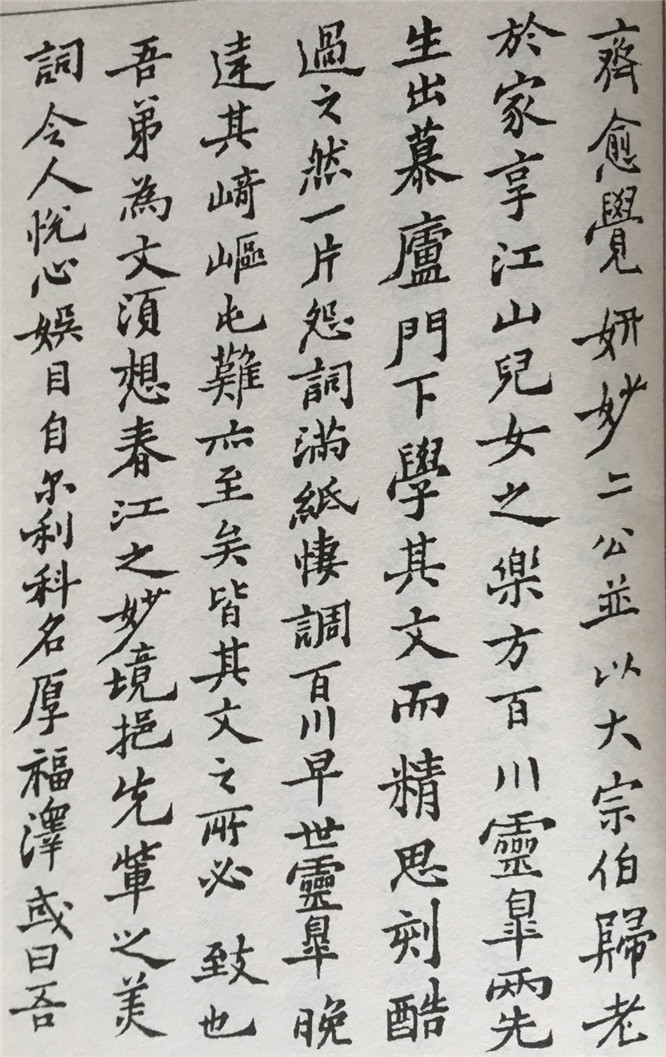 齋愈覺妍妙二公並以大宗伯歸老
於家享江山兒女之樂方百川靈臯兩先
生出慕廬門下學其文而精思刻酷
過之然一片怨詞滿紙悽調百川早世靈臯晚
達其崎嶇屯難亦至矣皆其文之所必致也
吾弟為文須想春江之妙境挹先輩之美
詞令人悅心娛目自尔利科名厚福澤或曰吾